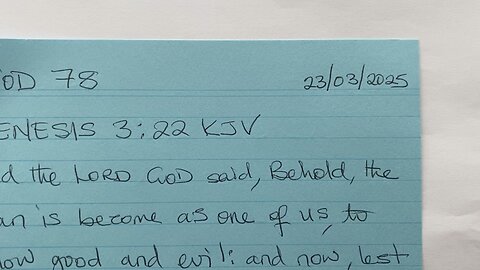 OD 78 23/03/2025
ENESIS 3:22 KJV
d the LORD GOD said, Behold, the
an is become as one of us, to
now good and evil: and now, lest